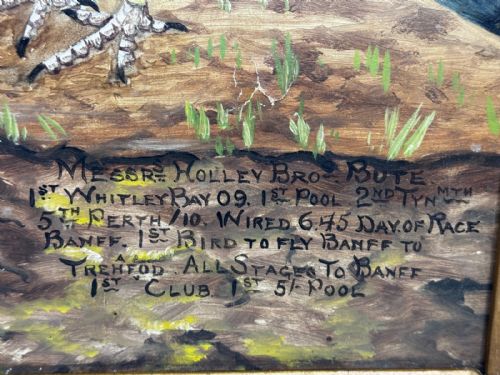 MESSRS HOLLEY BROS BUTE
1ST WHITLEY BAY 09. 1ST POOL 2ND TYNMTH
5TH PERTH/10. WIRED 6.45 DAY OF RACE
BANFF. 1ST BIRD TO FLY BANFF TO
TREHFOD. ALL STAGES TO BANFF
1ST "A" CLUB. 1ST 5/- POOL